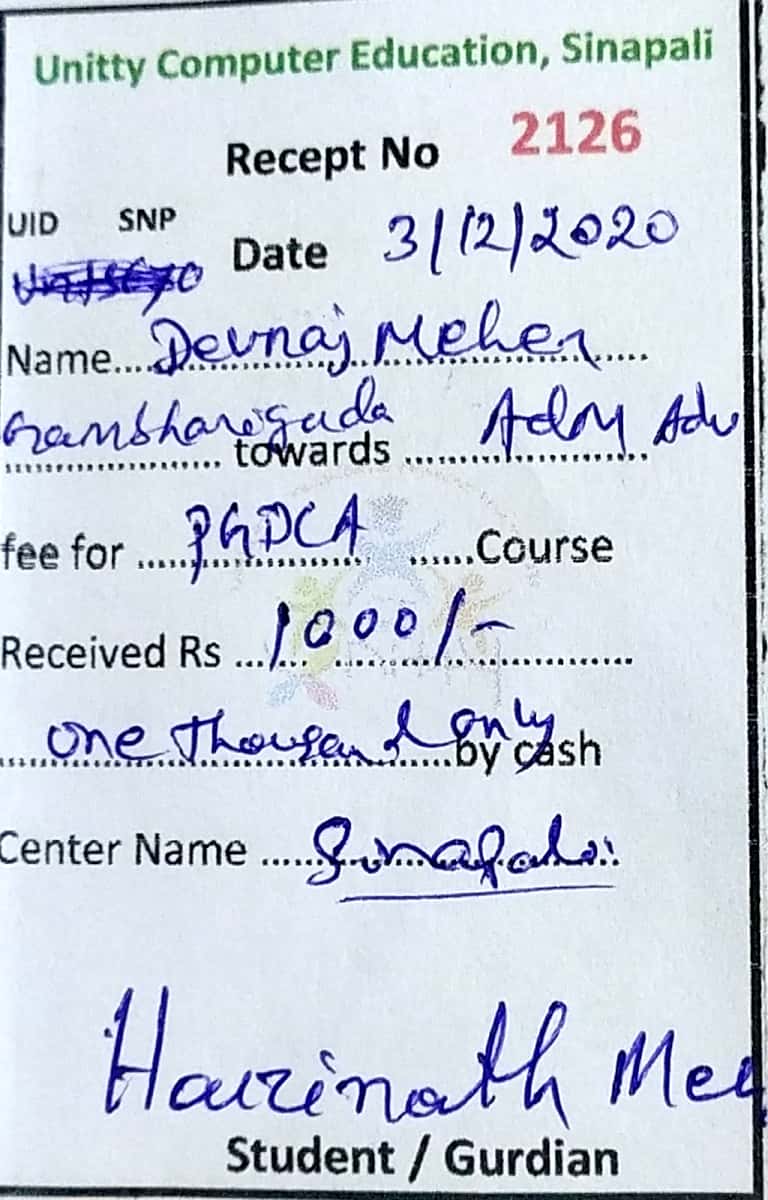 Unitty Computer Education, Sinapali
Recept No 2126
UID SNP
Date 3/12/2020
Name....Devraj Meher
towards Adm Adv
fee for PGDCA Course
Received Rs 1000/-
one thousand only by cash
Center Name Sinapali
Harinath
Student / Gurdian